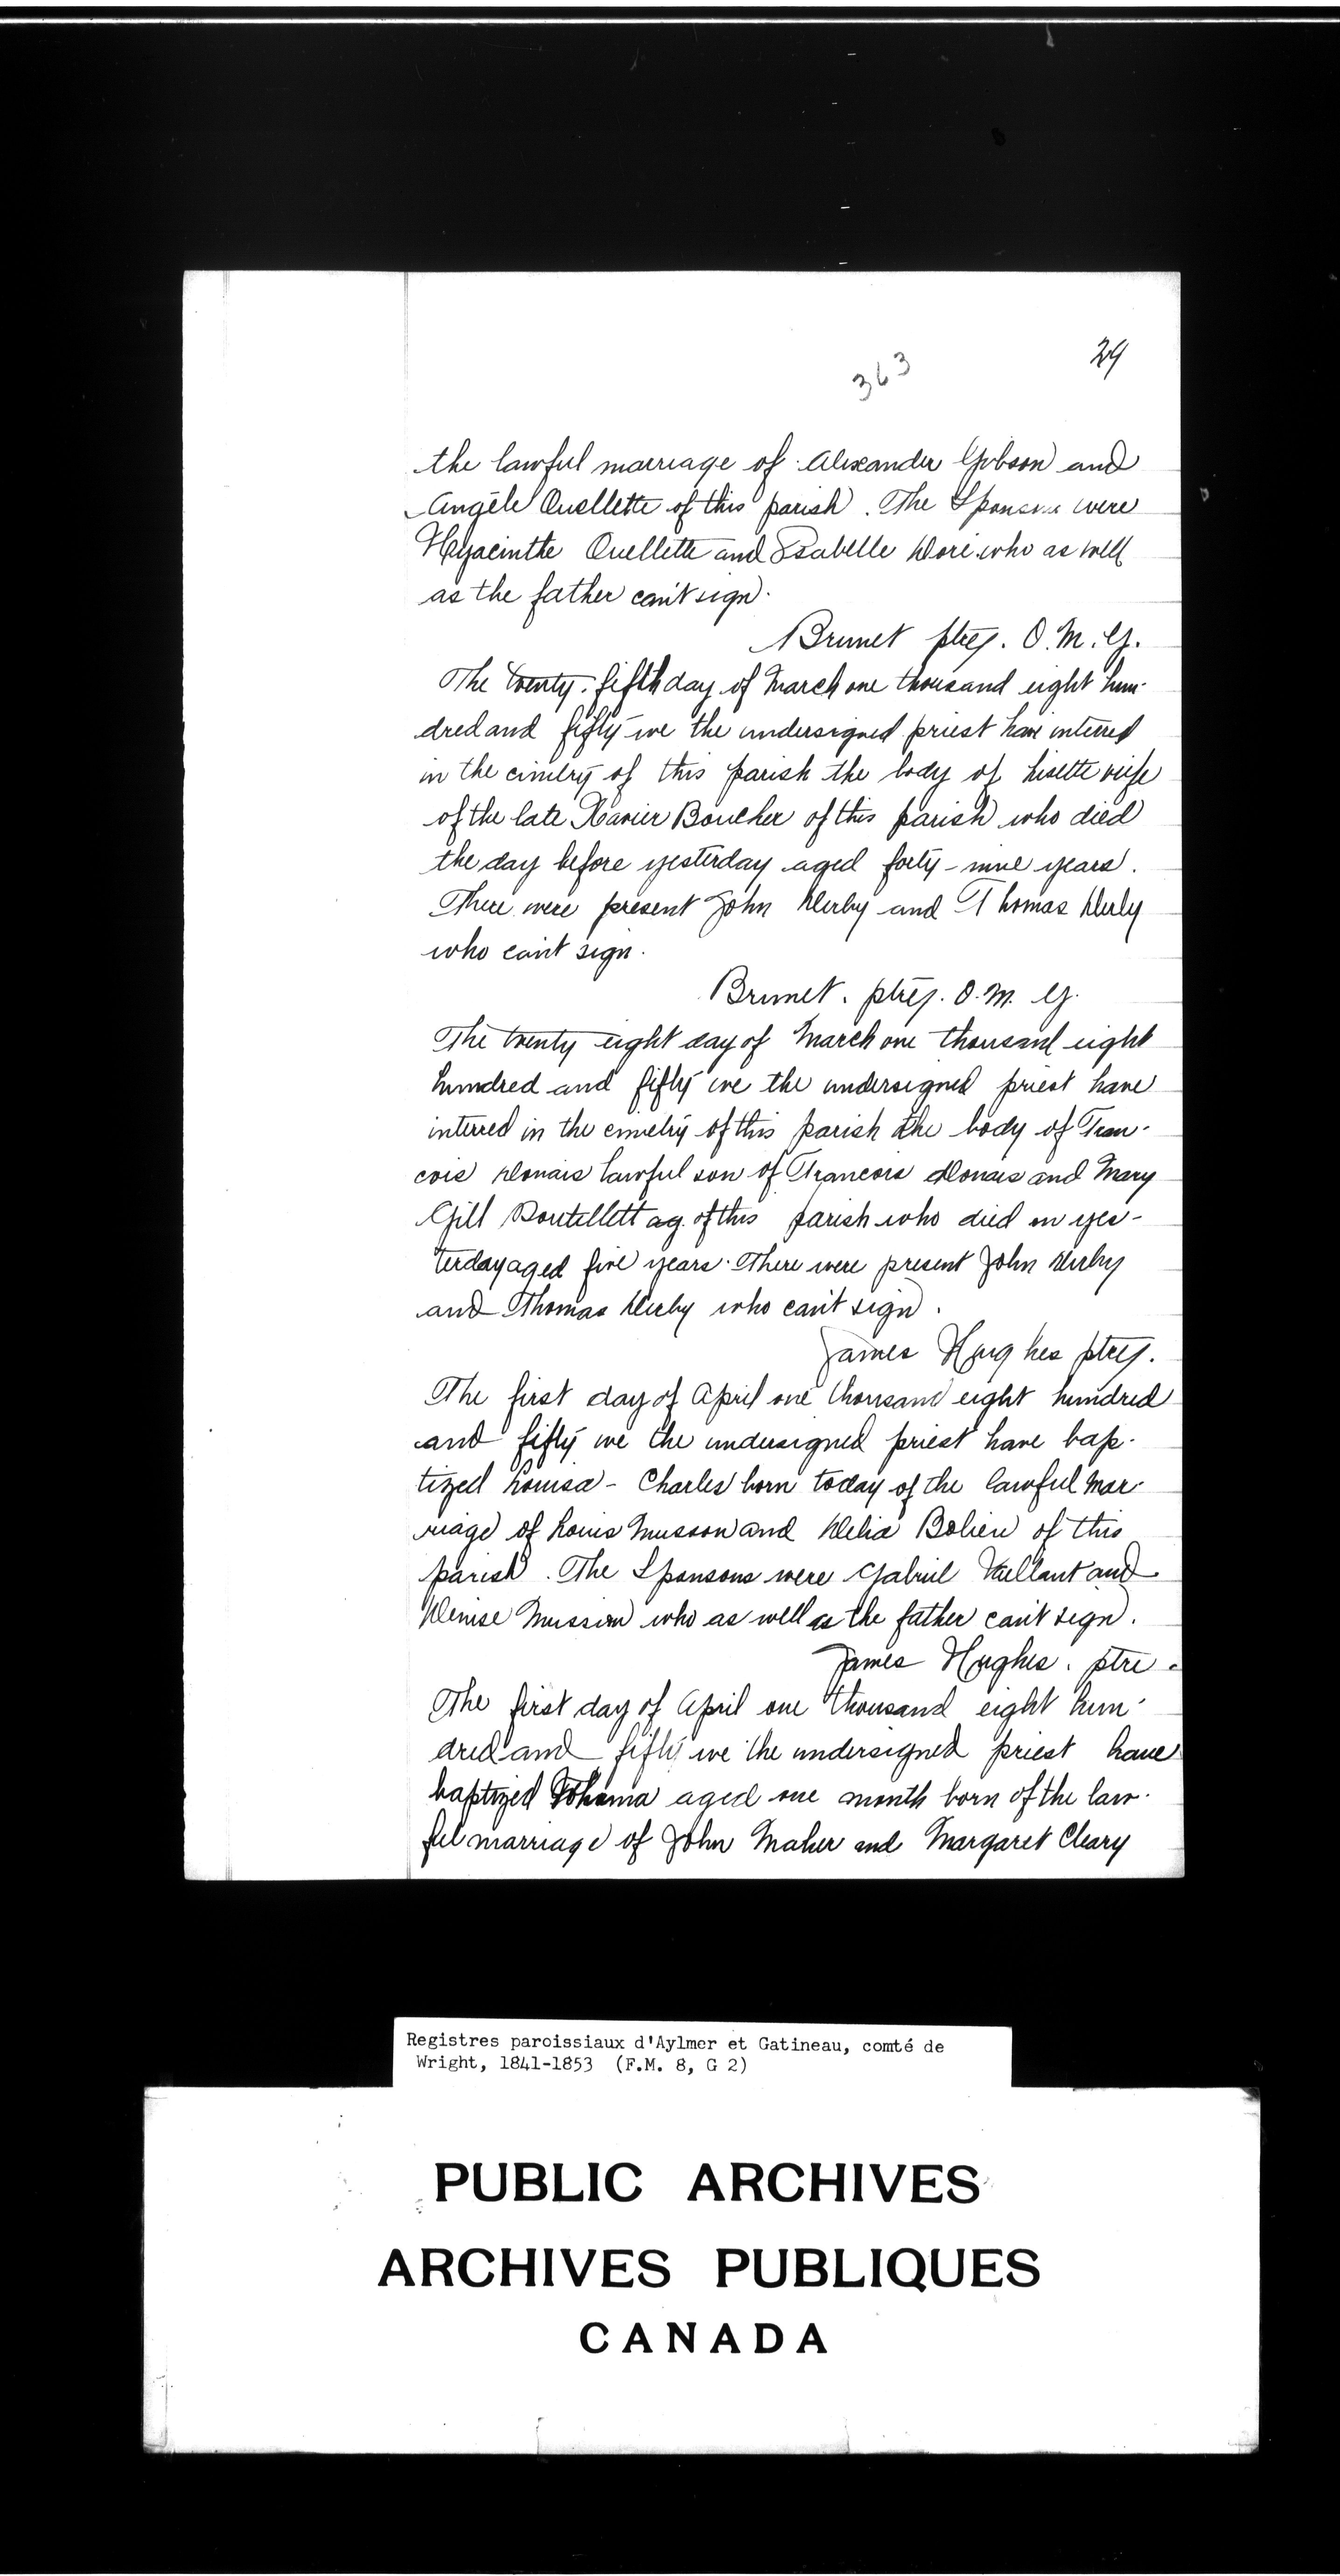 29
363
the lawful marriage of Alexander Gibson and
Angèle Ouellette of this parish. The Sponsors were
Hyacinthe Ouellette and Isabelle Doré who as well
as the father can't sign.
Brunet ptrej. O.M.I.
The twenty-fifth day of March one thousand eight hun-
dred and fifty we the undersigned priest have interred
in the cimetry of this parish the body of Lisette wife
of the late Xavier Boucher of this parish who died
the day before yesterday aged forty-nine years.
There were present John Kirby and Thomas Kirby
who can't sign.
Brunet. ptrej. O.M.I.
The twenty eight day of March one thousand eight
hundred and fifty we the undersigned priest have
interred in the cimetry of this parish the body of Fran-
cois Donais lawful son of Francois Donais and Mary
Gill Boutellett of this parish who died on yes-
terday aged five years. There were present John Kirby
and Thomas Kirby who can't sign.
James Hughes ptrej.
The first day of April one thousand eight hundred
and fifty we the undersigned priest have bap-
tized Louisa-Charles born today of the lawful mar-
riage of Louis Musson and Delia Bolieu of this
parish. The Sponsons were Gabriel Vaillant and
Denise Mussion who as well as the father can't sign.
James Hughes. ptre.
The first day of April one thousand eight hun-
dred and fifty we the undersigned priest have
baptized Johana aged one month born of the law-
ful marriage of John Maher and Margaret Cleary
Registres paroissiaux d'Aylmer et Gatineau, comté de
Wright, 1841-1853 (F.M. 8, G 2)
PUBLIC ARCHIVES
ARCHIVES PUBLIQUES
CANADA